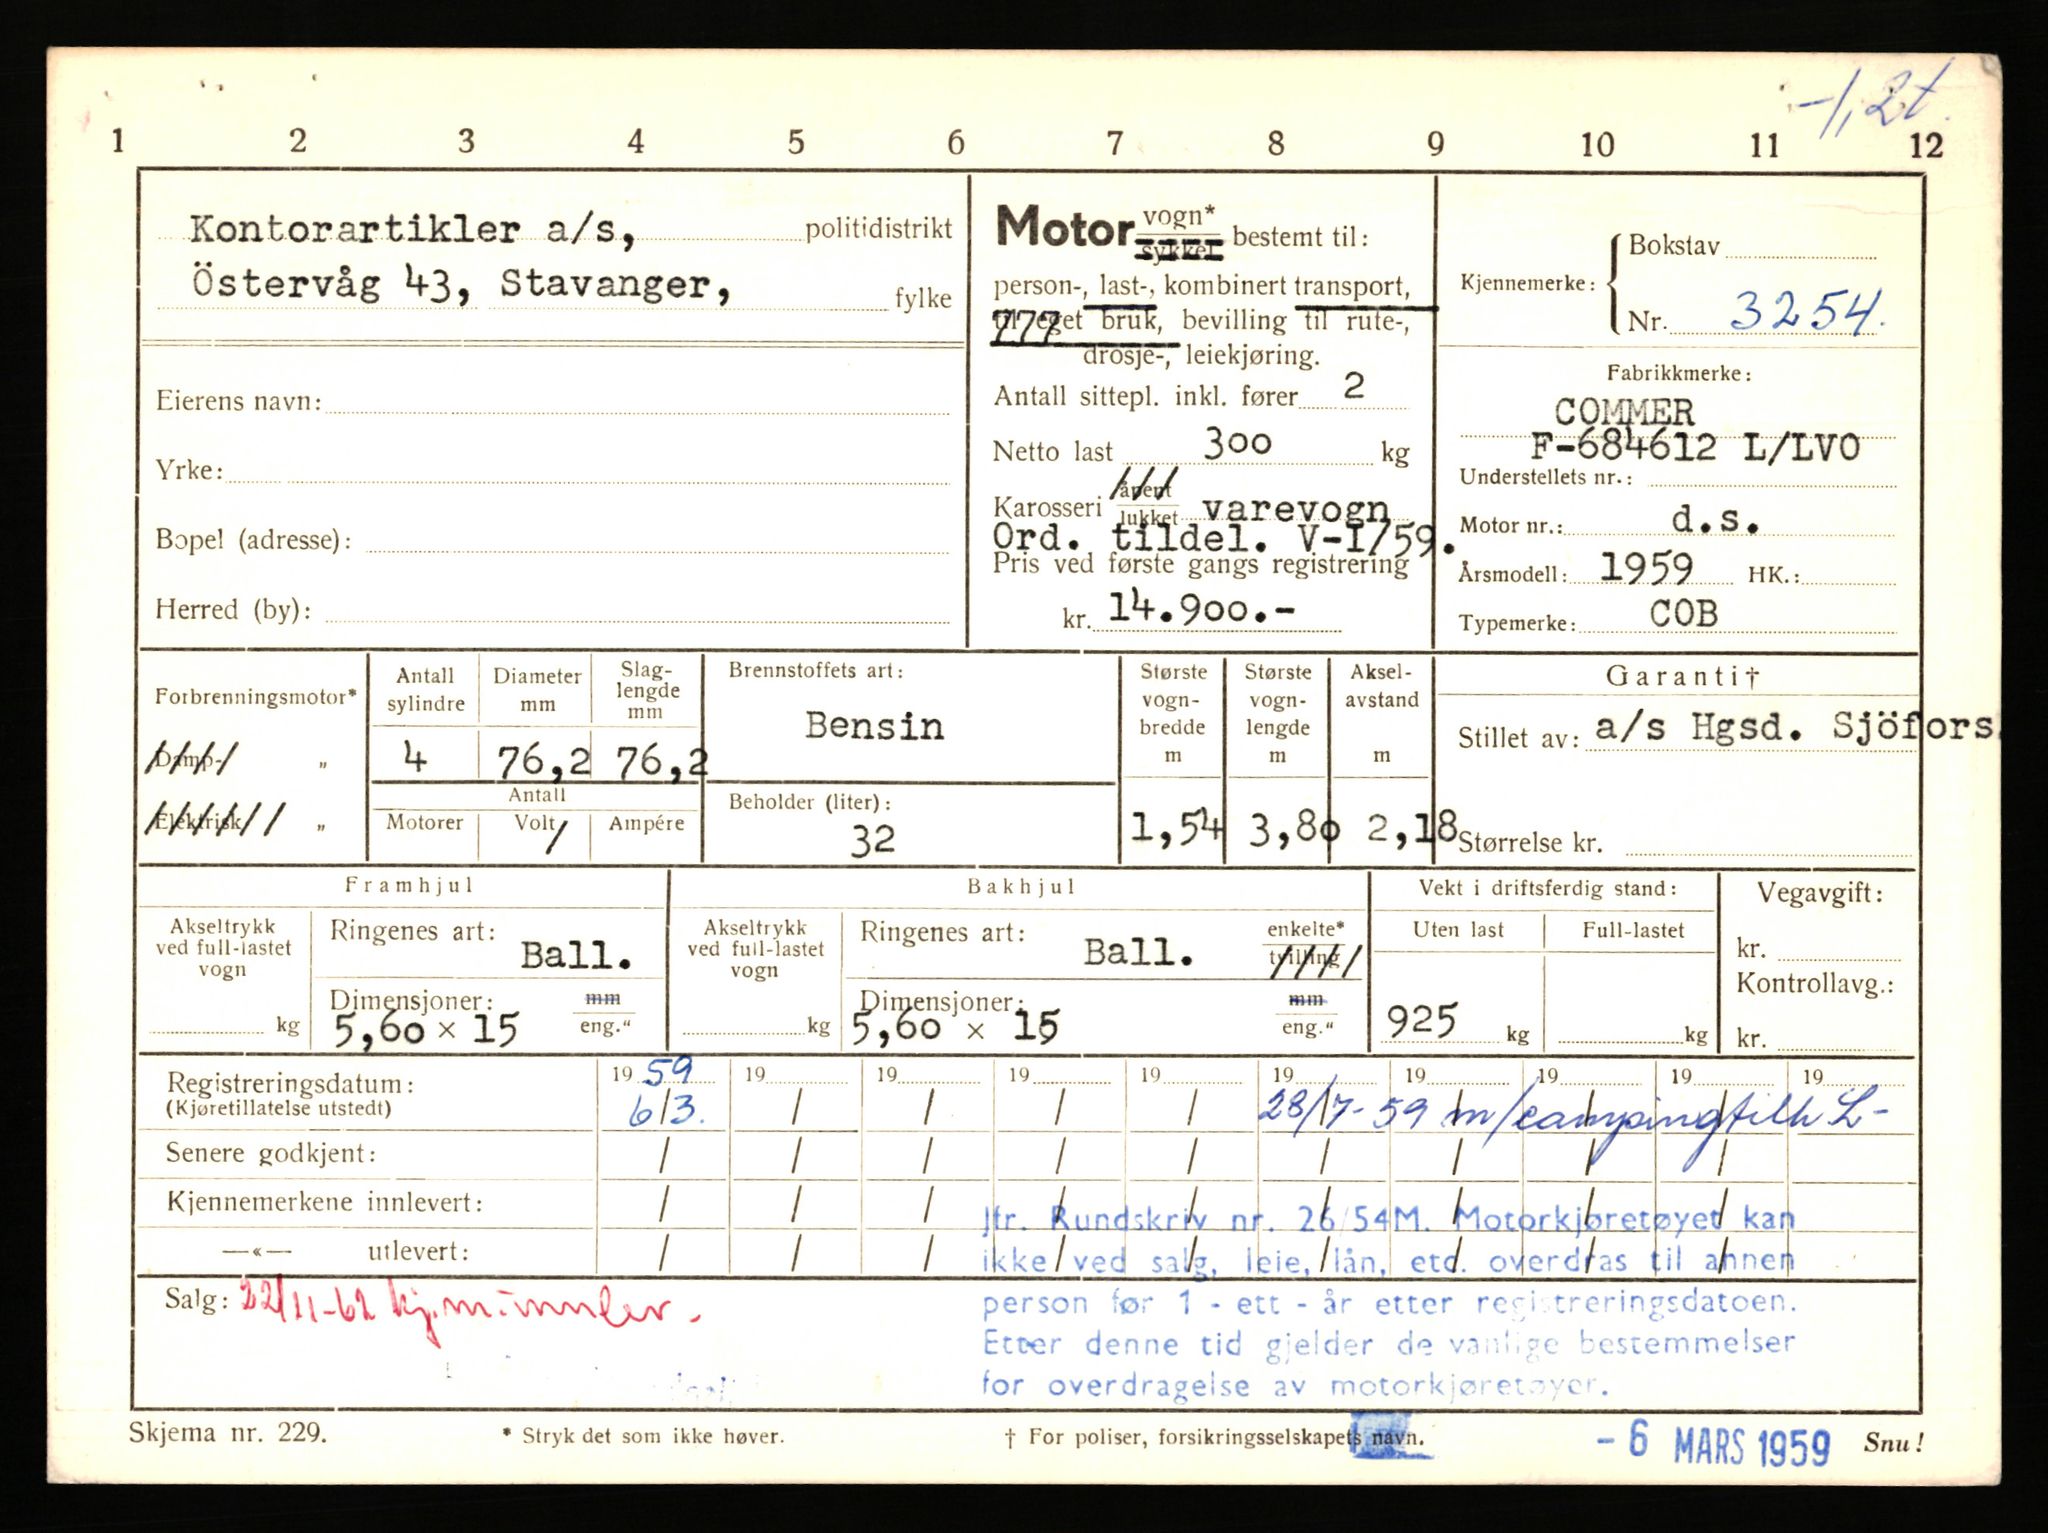 -1,2t.
1 2 3 4 5 6 7 8 9 10 11 12
Kontorartikler a/s, politidistrikt
Östervåg 43, Stavanger, fylke
Eierens navn:
Yrke:
Bopel (adresse):
Herred (by):
Motor vogn* sykkel bestemt til:
person-, last-, kombinert transport,
til eget bruk, bevilling til rute-,
drosje-, leiekjøring.
Antall sittepl. inkl. fører 2
Netto last 300 kg
Karosseri åpent lukket varevogn
Ord. tildel. V-I/59.
Pris ved første gangs registrering
kr. 14.900.-
Kjennemerke: { Bokstav
Nr. 3254.
Fabrikkmerke:
COMMER
F-684612 L/LVO
Understellets nr.:
Motor nr.: d.s.
Årsmodell: 1959 HK.:
Typemerke: COB
Forbrenningsmotor*
Damp- „
Elektrisk „
Antall sylindre
4
Diameter mm
76,2
Slag-
lengde
mm
76,2
Antall
Motorer Volt Ampére
Brennstoffets art:
Bensin
Beholder (liter):
32
Største
vogn-
bredde
m
1,54
Største
vogn-
lengde
m
3,80
Aksel-
avstand
m
2,18
Garanti†
Stillet av: a/s Hgsd. Sjöfors.
Størrelse kr.
Framhjul
Akseltrykk
ved full-lastet
vogn
kg
Ringenes art:
Ball.
Dimensjoner: mm eng."
5,60 × 15
Bakhjul
Akseltrykk
ved full-lastet
vogn
kg
Ringenes art:
Ball.
enkelte*
tvilling
Dimensjoner: mm eng."
5,60 × 15
Vekt i driftsferdig stand:
Uten last Full-lastet
925 kg kg
Vegavgift:
kr.
Kontrollavg.:
kr.
Registreringsdatum: 19 59 19 19 19 19 19 19 19 19 19
(Kjøretillatelse utstedt) 6/3. / / / / 28/7-59 m/campingtilh L-
Senere godkjent: / / / / / / / / /
Kjennemerkene innlevert: / / / / / / / / /
—«— utlevert: / / / / / / / / /
Jfr. Rundskriv nr. 26/54M. Motorkjøretøyet kan
ikke ved salg, leie, lån, etc. overdras til annen
person før 1 - ett - år etter registreringsdatoen.
Etter denne tid gjelder de vanlige bestemmelser
for overdragelse av motorkjøretøyer.
Salg: 22/11-62 kj.m. innlev.
Skjema nr. 229.
* Stryk det som ikke høver.
† For poliser, forsikringsselskapets navn.
- 6 MARS 1959
Snu!